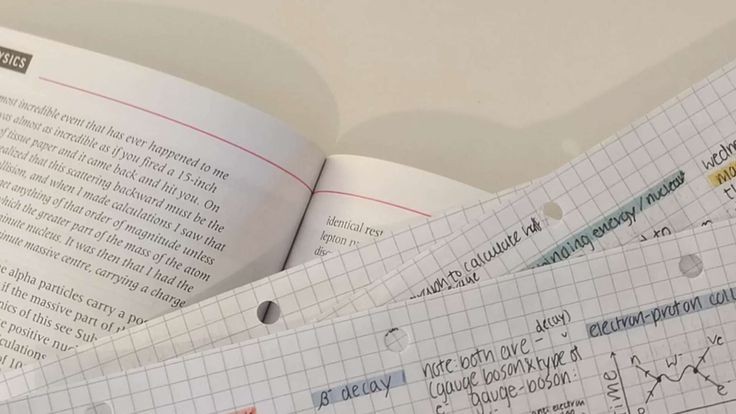 YSICS
most incredible event that has ever happened to me
was almost as incredible as if you fired a 15-inch
of tissue paper and it came back and hit you. On
realized that this scattering backward must be the
llision, and when I made calculations I saw that
et anything of that order of magnitude unless
which the greater part of the mass of the atom
minute nucleus. It was then that I had the
minute massive centre, carrying a charge
e alpha particles carry a pos
if the massive part of th
nics of this see Sub
e positive nuc
culations
of 10
identical rest
lepton n
disc
wedn
ma
th
binding energy/nuclear
to calculate
β- decay
note: both are - decay)
(gauge boson & type of
gauge-boson:
anti electron
electron-proton coll
time
n
W-
νe
p
e-